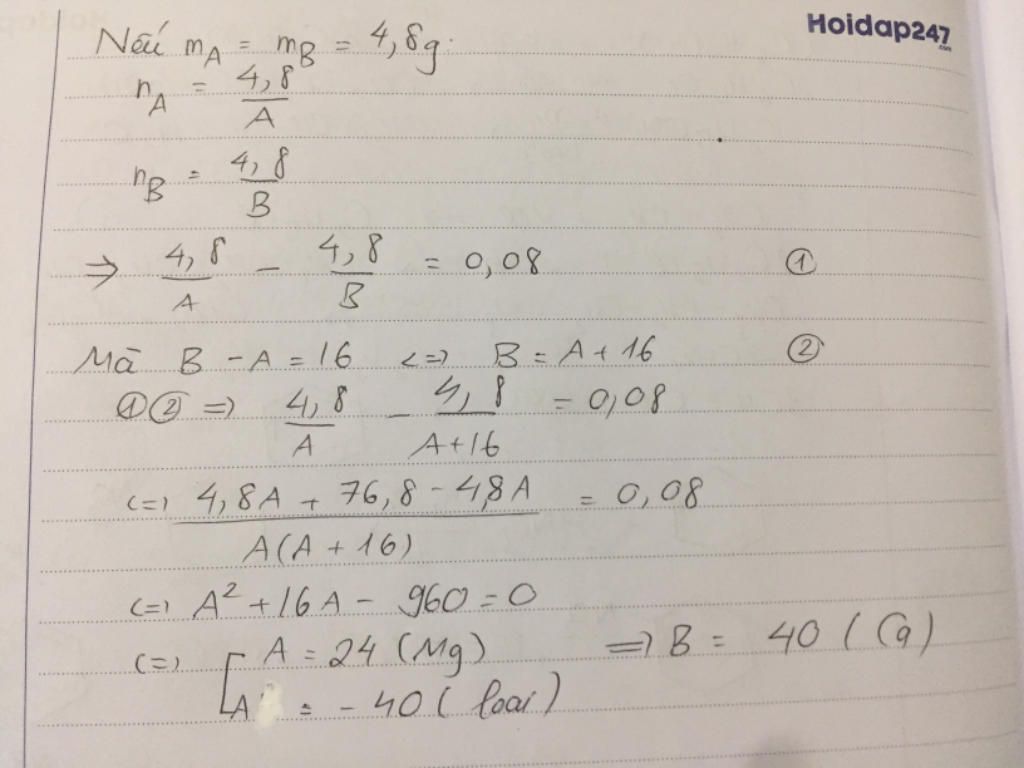 Hoidap247.com
Nếu mA = mB = 4,8g.
nA = 4,8/A
nB = 4,8/B
⇒ 4,8/A - 4,8/B = 0,08 ①
Mà B - A = 16 <=> B = A + 16 ②
①② => 4,8/A - 4,8/(A+16) = 0,08
<=> (4,8A + 76,8 - 4,8A)/(A(A + 16)) = 0,08
<=> A² + 16A - 960 = 0
<=> [ A = 24 (Mg) => B = 40 (Ca)
A = - 40 ( loại )